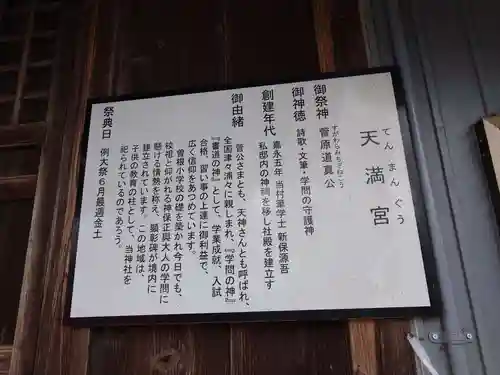 天満宮
てんまんぐう
御祭神
菅原道真公
すがわらみちざねこう
御神徳
詩歌・文筆・学問の守護神
創建年代
嘉永五年 当村漢学士 新保源吾
私邸内の神祠を移し社殿を建立す
御由緒
菅公さまとも、天神さんとも呼ばれ、
全国津々浦々に親しまれ、『学問の神』
『書道の神』として、学業成就、入試
合格、習い事の上達に御利益で、
広く信仰をあつめています。
曽根小学校の礎を築かれ今日でも、
校祖と仰がれる神保正與大人の学問に
懸ける情熱を称え、顕彰碑が境内に
建立されています。この地域は、
子供の教育の柱として、当神社を
祀られているのであろう。
祭典日
例大祭 6月最週金土